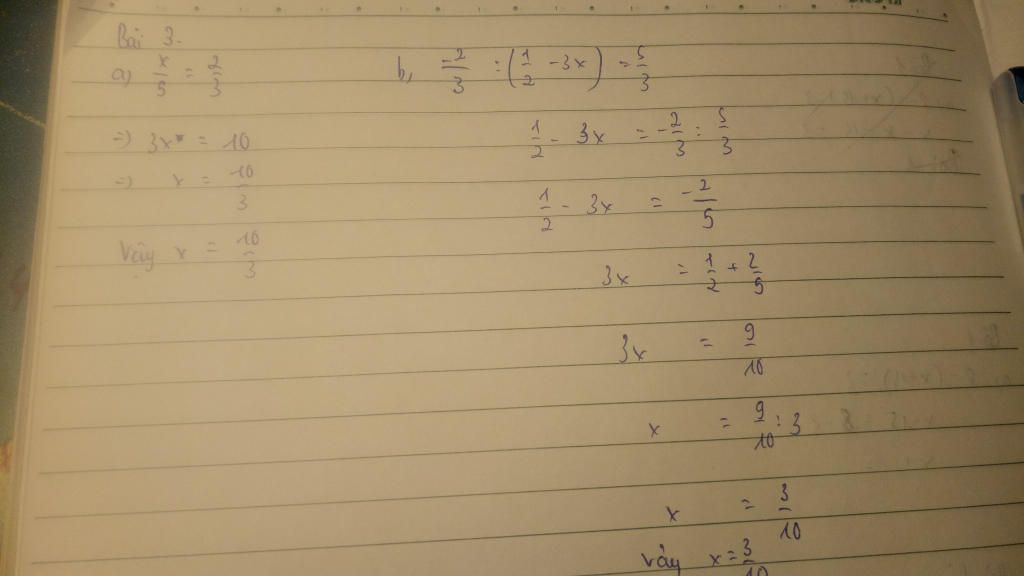 Bài 3.
a) x/5 = 2/3
=> 3x = 10
=> x = 10/3
Vậy x = 10/3
b, -2/3 : (1/2 - 3x) = 5/3
1/2 - 3x = -2/3 : 5/3
1/2 - 3x = -2/5
3x = 1/2 + 2/5
3x = 9/10
x = 9/10 : 3
x = 3/10
Vậy x = 3/10